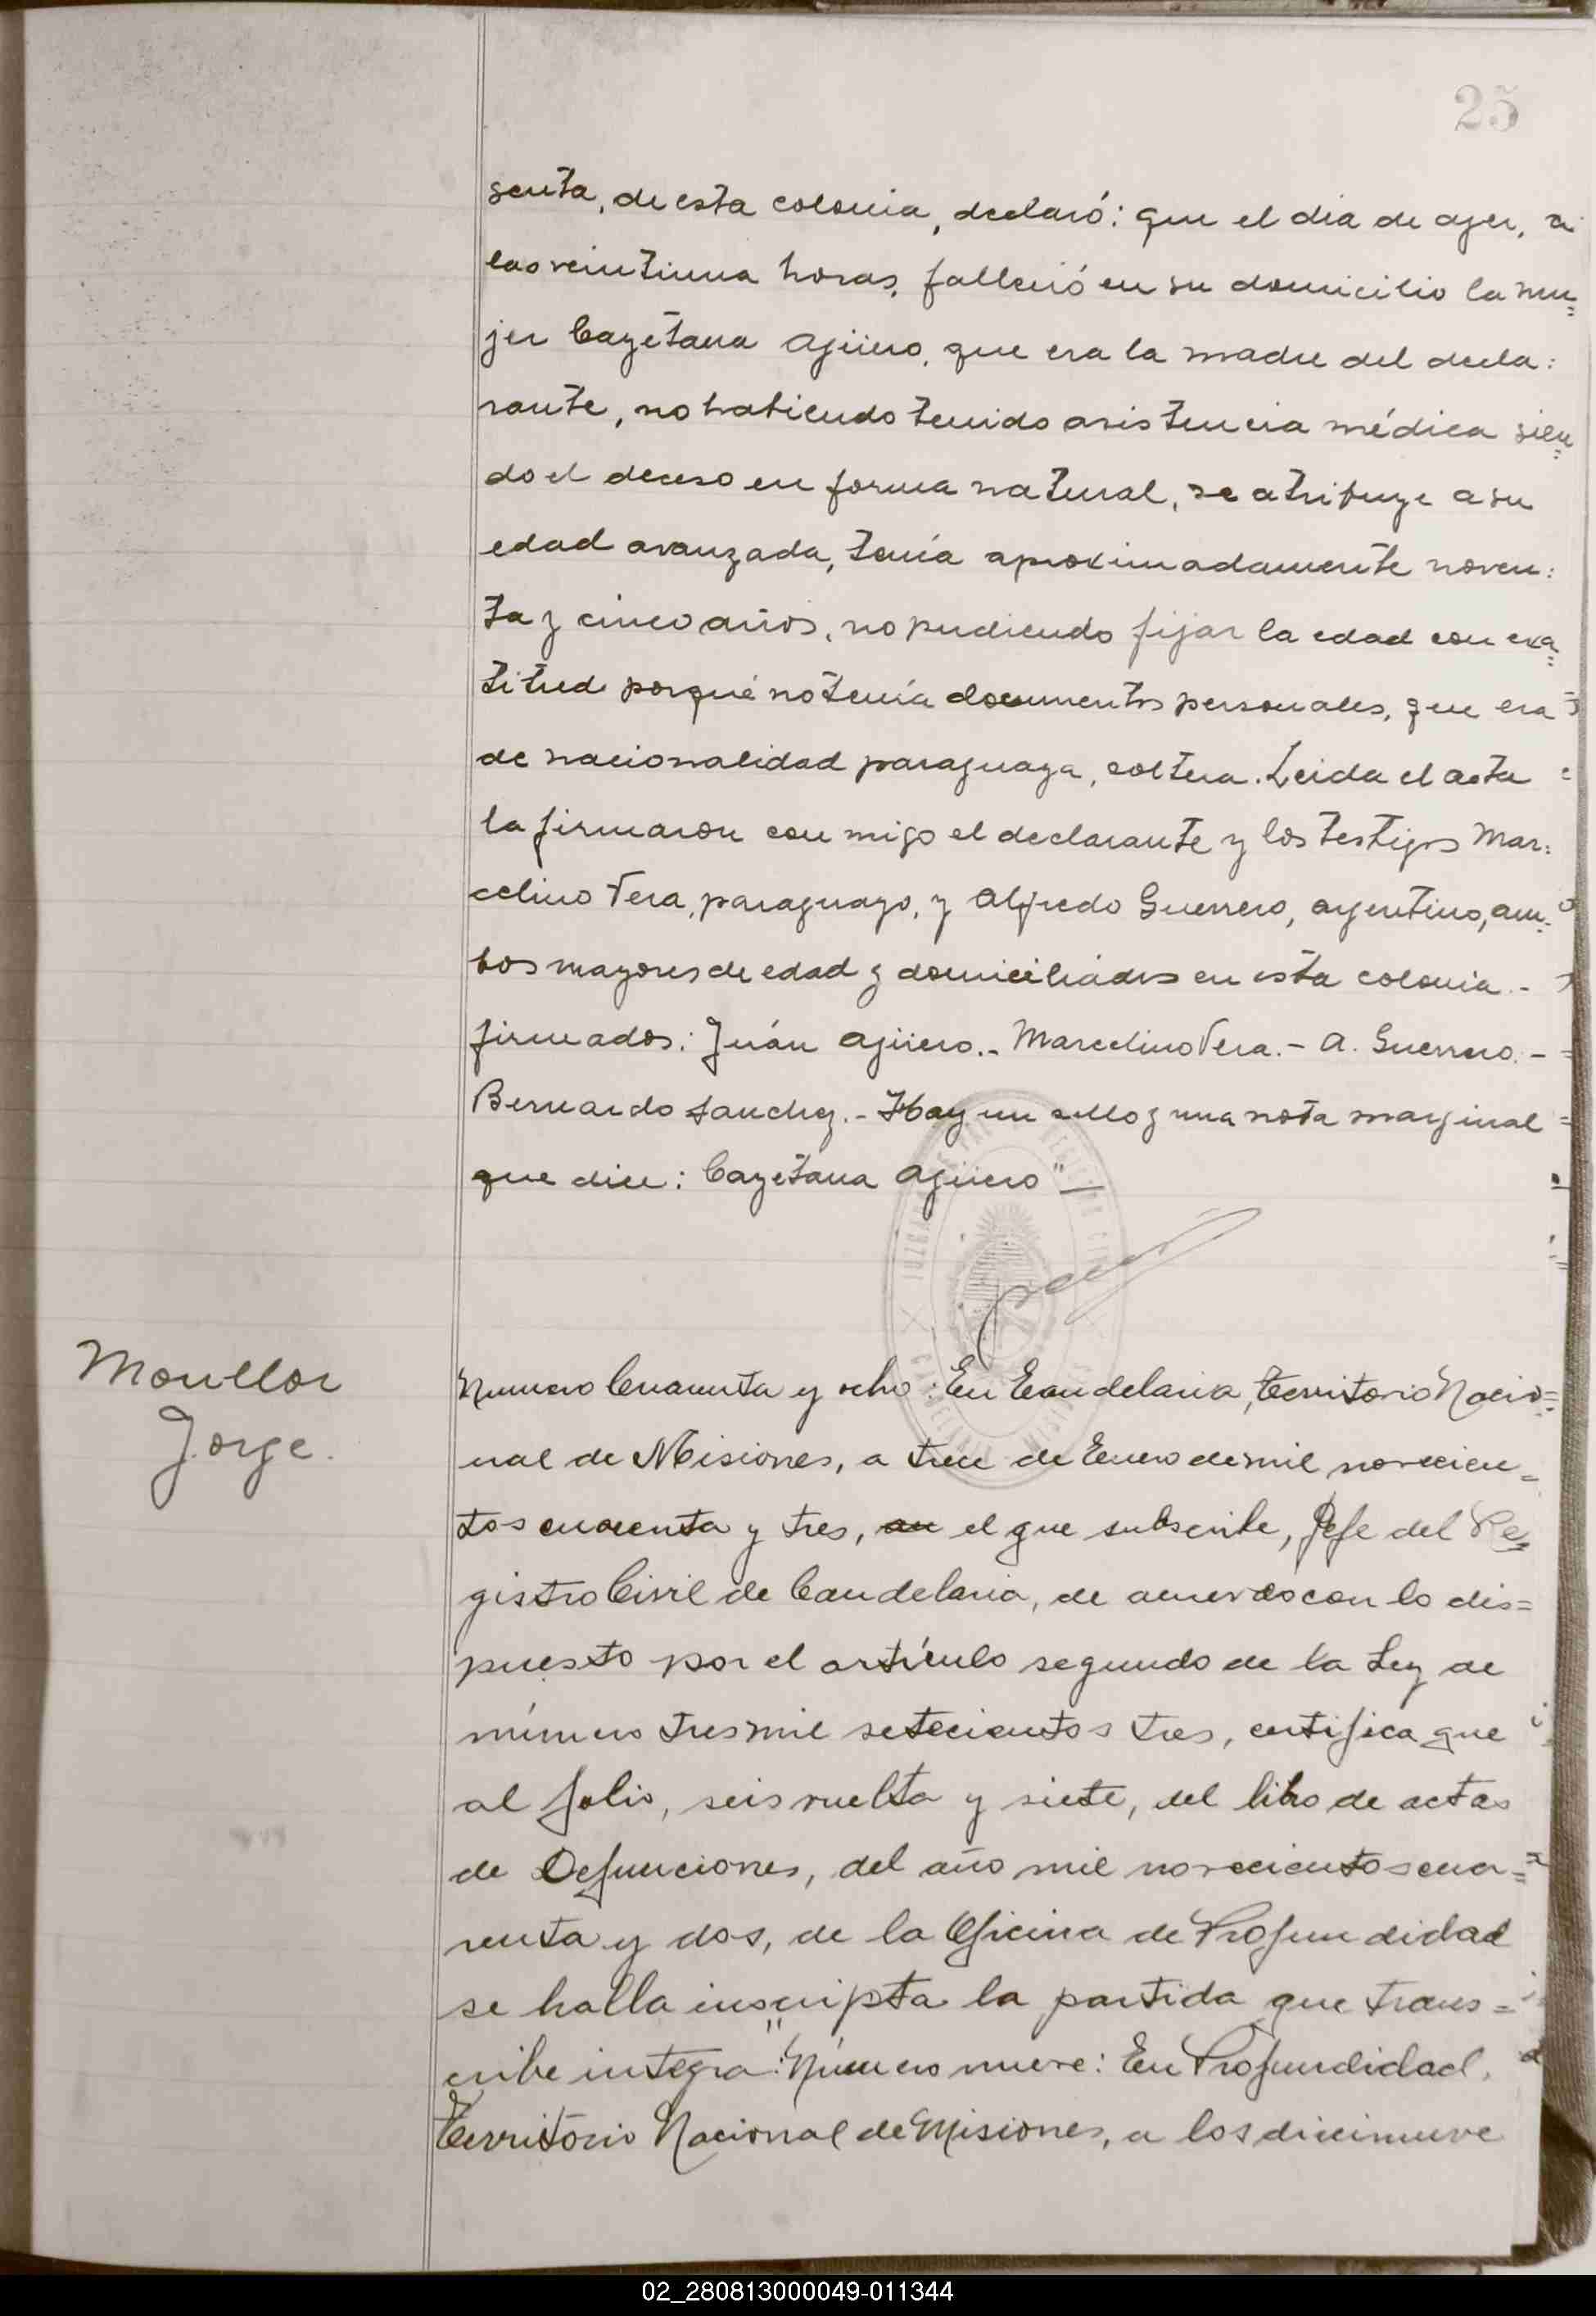 25
senta, de esta colonia, declaró: que el dia de ayer, a
las veintiuna horas, falleció en su domicilio la mu=
jer Cayetana Agüero, que era la madre del decla=
rante, no habiendo tenido asistencia médica sien=
do el deceso en forma natural, se atribuye a su
edad avanzada, tenía aproximadamente noven=
ta y cinco años, no pudiendo fijar la edad con exa=
titud porqué no tenía documentos personales, que era
de nacionalidad paraguaya, soltera. Leida el acta
la firmaron con migo el declarante y los testigos Mar=
celino Vera, paraguayo, y Alfredo Guerrero, argentino, am=
bos mayores de edad y domiciliados en esta colonia.-
firmados: Juán Agüero.- Marcelino Vera.- A. Guerrero.-
Bernardo Sanchez.- Hay un sello y una nota marginal
que dice: Cayetana Agüero"—
Moullor
Jorge.
Numero Cuarenta y ocho: En Candelaria, Territorio Nacio=
nal de Misiones, a trece de Enero de mil novecien=
tos cuarenta y tres, el que subscribe, Jefe del Re=
gistro Civil de Candelaria, de acuerdo con lo dis=
puesto por el artículo segundo de la Ley de
número tres mil setecientos tres, certifica que
al folio, seis vuelta y siete, del libro de actas
de Defunciones, del año mil novecientos cua=
renta y dos, de la Oficina de Profundidad
se halla inscripta la partida que trans=
cribe integra: "Número nueve: En Profundidad,
Territorio Nacional de Misiones, a los diecinueve
02_280813000049-011344